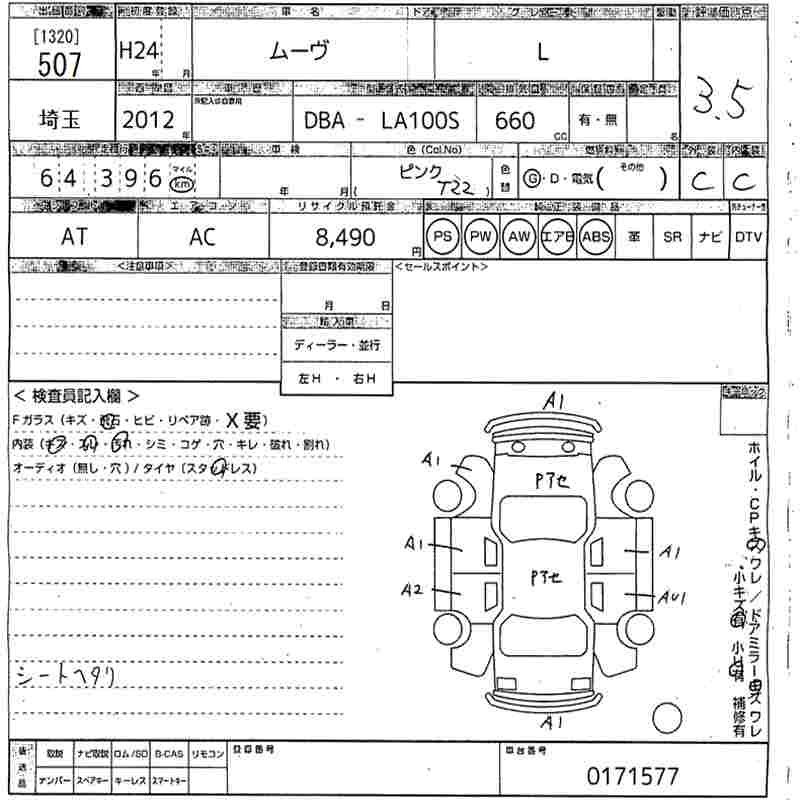 初度登録 車名 ドア グレード 駆動 評価点
[1320]
507 H24 年 月 ムーヴ L 3.5
埼玉 2012 年 DBA - LA100S 660 CC 有・無 名
車検 色(Col.No) 燃料 外装 内装
64,396 マイル km 年 月 ピンク ( T22 ) 色替 G・D・電気( その他 ) C C
エアコン リサイクル預託金 純正装備品
AT AC 8,490 円 PS PW AW エアB ABS 革 SR ナビ DTV
<注意事項> 登録書類有効期限 <セールスポイント>
月 日
輸入車
ディーラー・並行
左H ・ 右H
< 検査員記入欄 >
Fガラス (キズ・飛石・ヒビ・リペア跡・X要)
内装 (キズ・スレ・汚れ・シミ・コゲ・穴・キレ・破れ・割れ)
オーディオ (無し・穴) / タイヤ (スタッドレス)
シートヘタリ
A1
A1
Pアセ
A1 A1
Pアセ
A2 AU1
A1
ホイル・CPキズ ワレ / ドアミラーキズ ワレ
小キズ有 小凹有 補修有
後送品 取説 ナビ取説 ロム/SD B-CAS リモコン 登録番号 車台番号
ナンバー スペアキー キーレス スマートキー 0171577